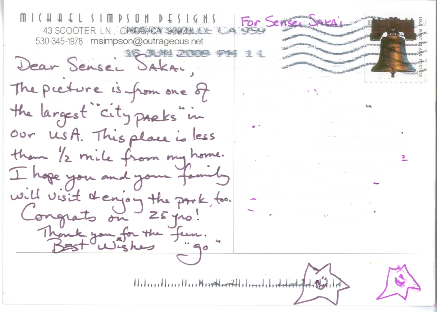 MICHAEL SIMPSON DESIGNS
For Sensei SAKAI
43 SCOOTER LN.,
530-345-1978 msimpson@outrageous.net
16 JUN 2009 PM 1 L
Dear Sensei SAKAI,
The picture is from one of
the largest "city parks" in
our USA. This place is less
than 1/2 mile from my home.
I hope you and your family
will visit & enjoy the park, too.
Congrats on 25 yrs!
Thank you for the fun.
Best Wishes "go"